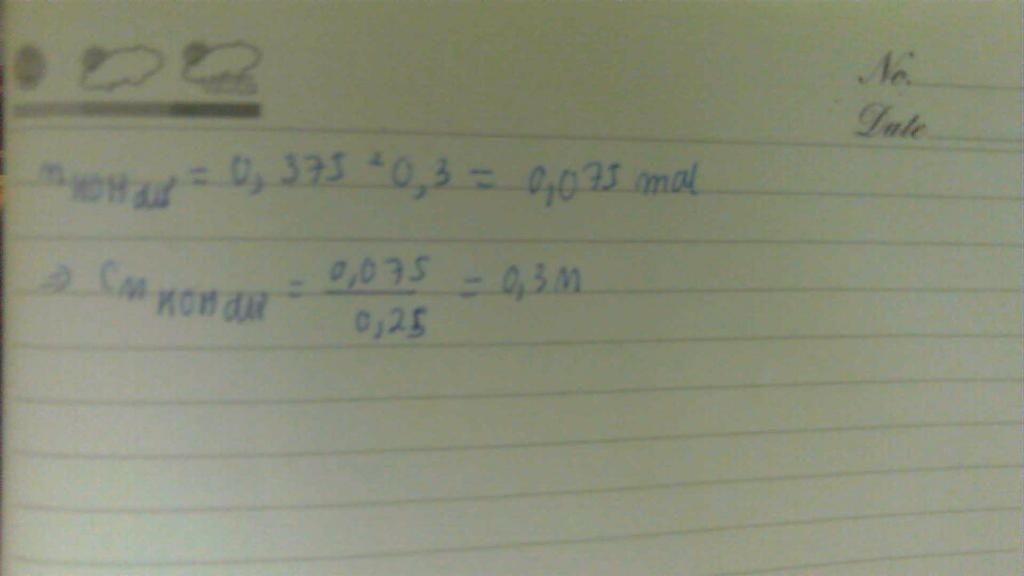 No.
Date
n KOH dư = 0,375 - 0,3 = 0,075 mol
=> CM KOH dư = 0,075 / 0,25 = 0,3M